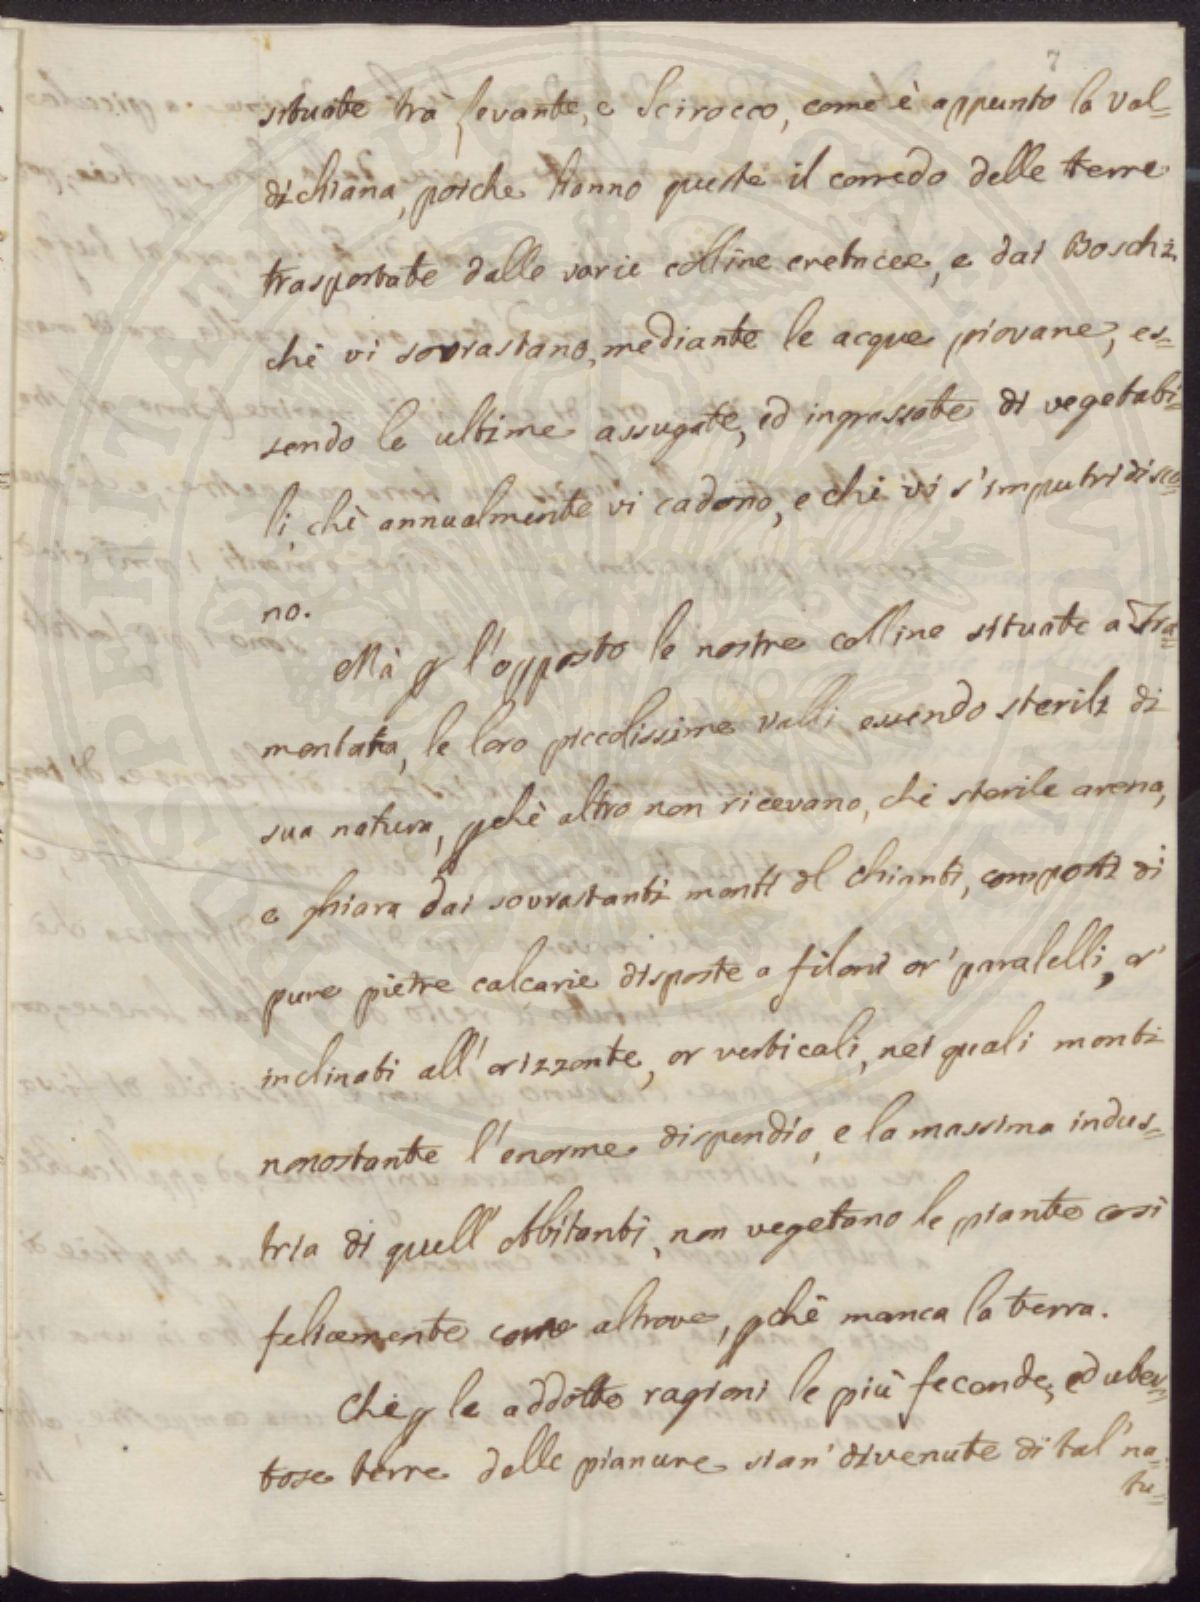 7
situate trà Levante, e Scirocco, come è appunto la Val=
dichiana, poiche hanno queste il corredo delle terre
trasportate dalle varie colline cretacee, e dai Boschi
chè vi sovrastano, mediante le acque piovane, es=
sendo le ultime assugate, ed ingrassate di vegetabi=
li, chè annualmente vi cadono, e chè vi s'imputridisco=
no.
Mà p l'opposto le nostre colline situate a Tra=
montana, le loro piccolissime valli essendo sterili di
sua natura, pchè altro non ricevano, che sterile arena,
e ghiara dai sovrastanti monti del Chianti, composti di
pure pietre calcarie disposte a filoni or' paralelli, or'
inclinati all' orizzonte, or verticali, nei quali monti
nonostante l'enorme dispendio, e la massima indus=
tria di quell' Abitanti, non vegetano le piante così
felicemente come altrove, pchè manca la terra.
Che p le addotte ragioni le più feconde, ed uber=
tose terre delle pianure sian' divenute di tal' na=
tu=